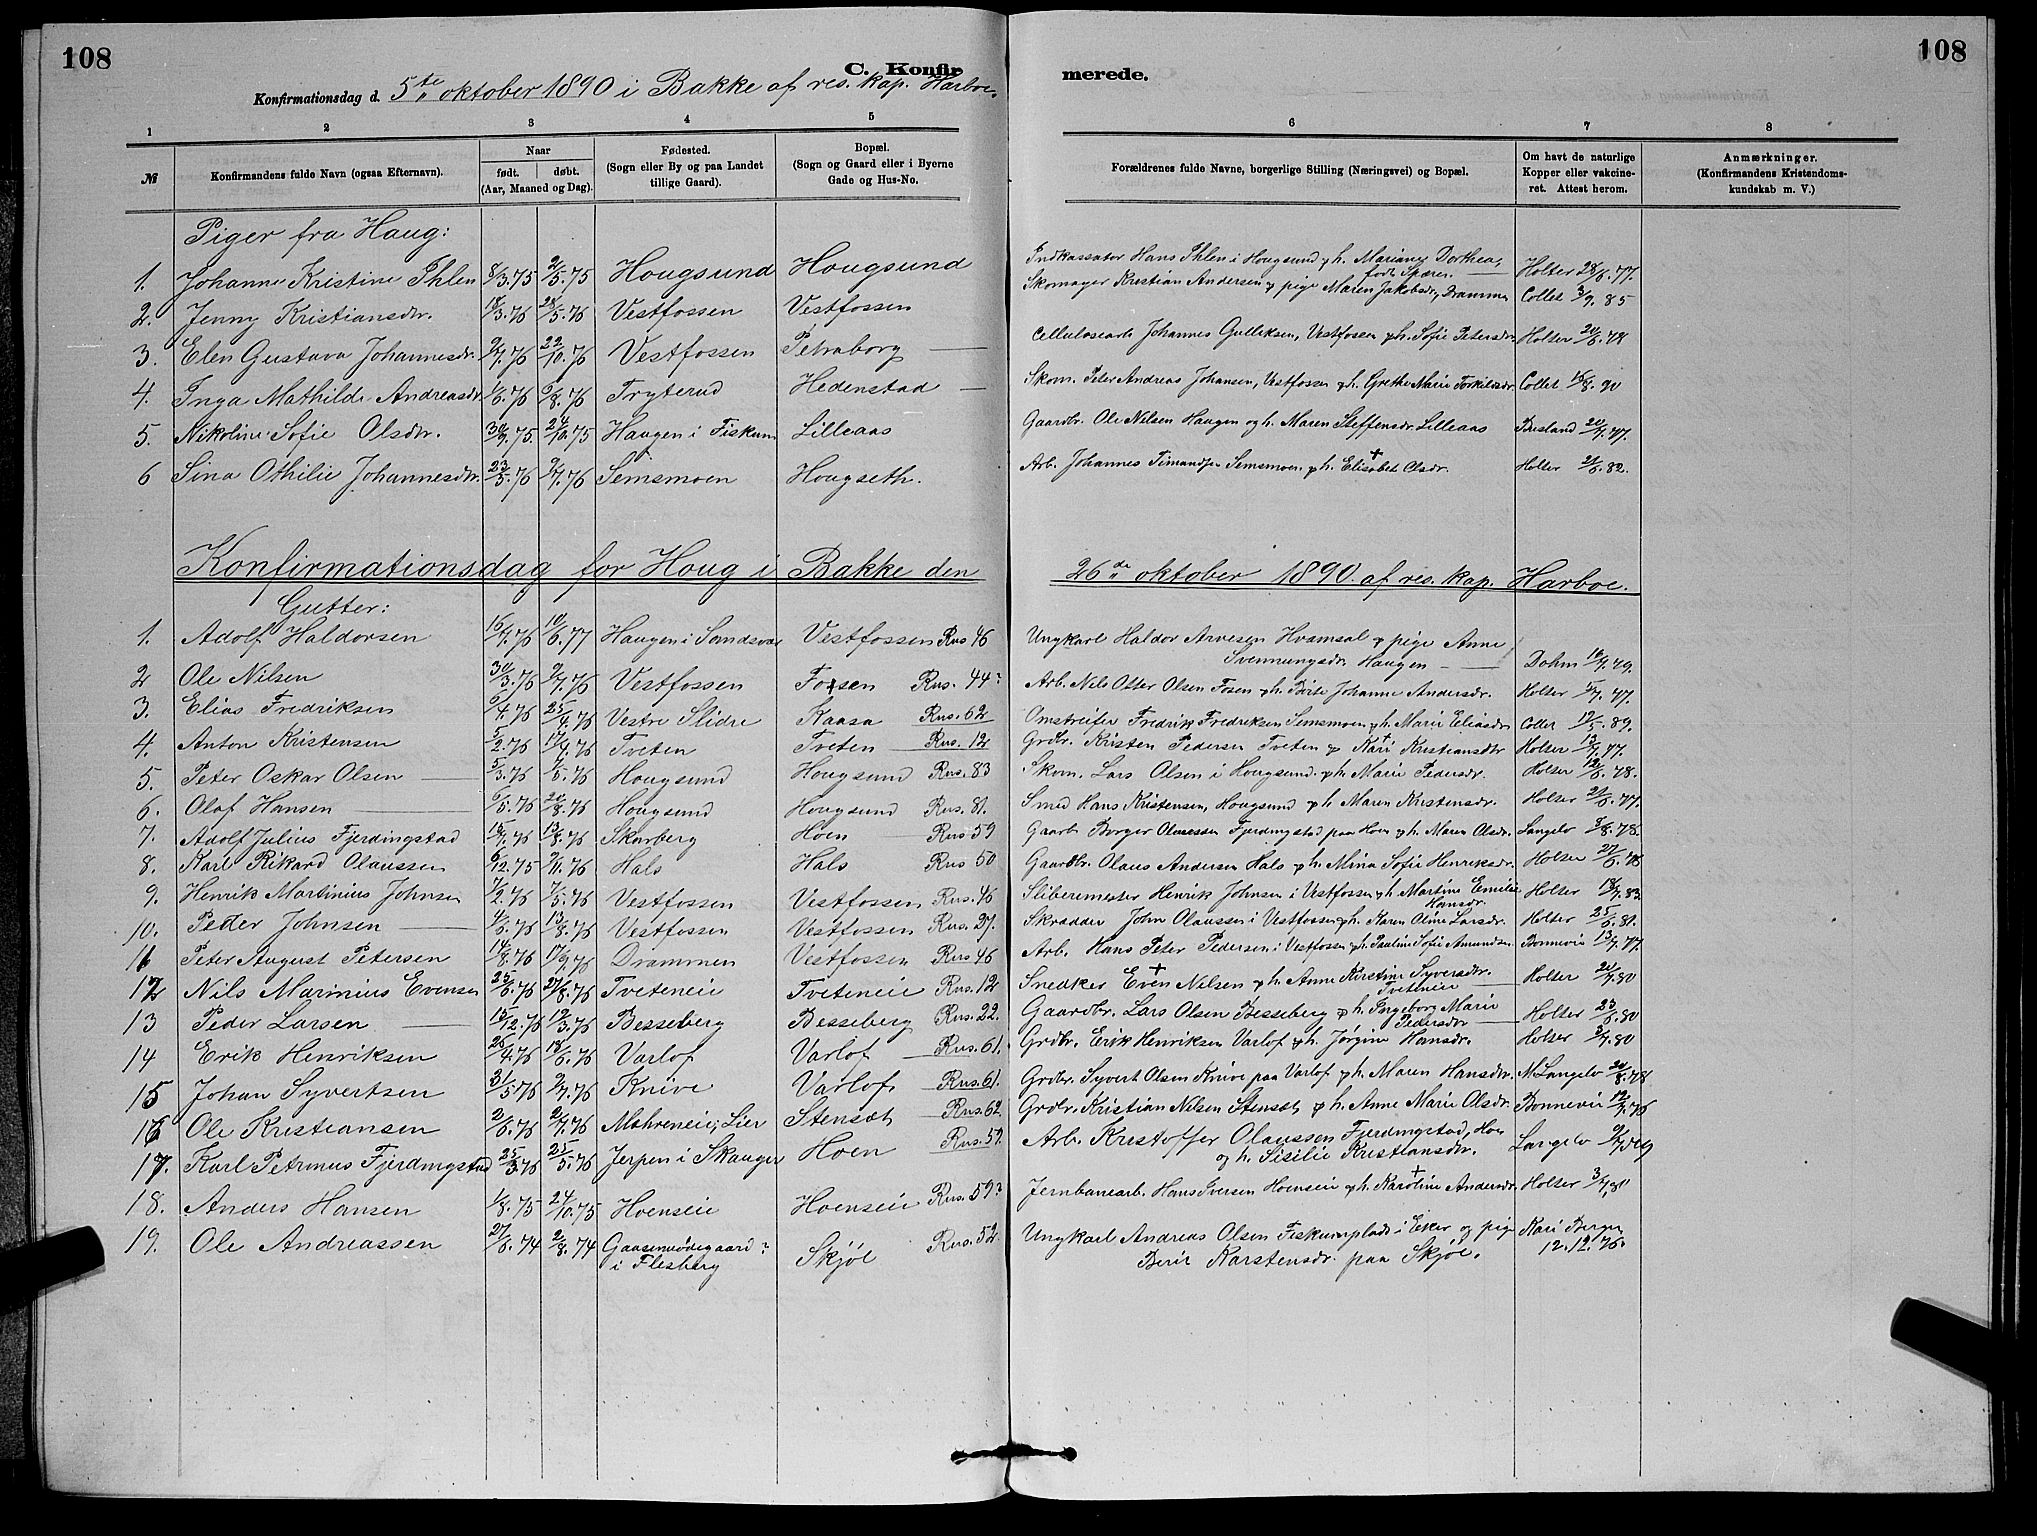 108
108
C. Konfirmerede.
Konfirmationsdag d. 5te oktober 1890 i Bakke af res. kap. Harboe.
1 2 3 4 5 6 7 8
№ Konfirmandens fulde Navn (ogsaa Efternavn). Naar født. døbt. (Aar, Maaned og Dag). Fødested. (Sogn eller By og paa Landet tillige Gaard). Bopæl. (Sogn og Gaard eller i Byerne Gade og Hus-No. Forældrenes fulde Navne, borgerlige Stilling (Næringsvei) og Bopæl. Om havt de naturlige Kopper eller vakcineret. Attest herom. Anmærkninger. (Konfirmandens Kristendomskundskab m. V.)
Piger fra Haug:
1. Johanne Kristine Ihlen 8/3.75 2/5.75 Hougsund Hougsund Indkassator Hans Ihlen i Hougsund & h. Mariane Dorthea, født Holter 28/6.77.
2. Jenny Kristiansdr. 18/3.76 28/5.76 Vestfossen Vestfossen Skomager Kristian Andersen & pige Maren Jakobsdr., Drammen Collet 3/9.85
3. Elen Gustava Johannesdr. 2/7.76 22/10.76 Vestfossen Petraborg Cellulosearb. Johannes Gulliksen, Vestfossen & h. Sofie Petersdr. Holter 20/6.78
4. Inga Mathilde Andreasdr. 1/6.76 6/8.76 Tryterud Hedenstad Skom. Peter Andreas Johansen, Vestfossen & h. Grethe Marie Torkildsdr. Collet 16/8.90
5. Nikoline Sofie Olsdr. 30/9.75 24/10.75 Haugen i Fiskum Lilleaas Gaardbr. Ole Nilsen Haugen og h. Maren Steffensdr. Lilleaas 20/7.77.
6 Sina Othilie Johannesdr. 23/5.76 9/7.76 Semsmoen Hougseth. Arb. Johannes Semsmoen & h. Elisabet Olsdr. Holter 21/6.82.
Konfirmationsdag for Houg i Bakke den 26de oktober 1890. af res. kap. Harboe.
Gutter:
1. Adolf Haldorsen 16/7.76 10/6.77 Haugen i Sandsvær Vestfossen Rus. 46 Ungkarl Haldor Arvesen Hvamsal & pige Anne
Svennungsdr. Haugen Dohm 16/9.79.
2 Ole Nilsen 30/3.76 2/7.76 Vestfossen Fosen Rus. 44? Arb. Nils Otter Olsen Fosen & h. Birte Johanne Andersdr. Holter 5/7.77.
3. Elias Fredriksen 6/4.76 25/4.76 Vestre Slidre Kaasa Rus. 62 Omstreifer Fredrik Fredriksen Semsmoen & h. Marie Eliasdr. Collet 19/5.89.
4. Anton Kristensen 5/2.76 17/4.76 Tveten Tveten Rus. 12 Grdbr. Kristen Pedersen Tveten & Kari Kristiansdr. Holter 13/7.77.
5. Peter Oskar Olsen 5/3.76 7/5.76 Hougsund Hougsund Rus. 83 Skom. Lars Olsen i Hougsund & h. Marie Pedersdr. Holter 12/6.78.
6. Olaf Hansen 6/5.76 20/8.76 Hougsund Hougsund Rus. 81. Smed Hans Kristensen, Hougsund & h. Maren Kristensdr. Holter 21/6.77.
7. Adolf Julius Fjerdingstad 15/7.76 13/8.76 Skarberg Hoen Rus. 59 Gaarb. Borger Olaussen Fjerdingstad paa Hoen & h. Maren Olsdr. Langelo 8/8.78.
8. Karl Rikard Olaussen 6/12.75 9/11.76 Hals Hals Rus 50 Gaardbr. Olaus Andersen Hals & h. Mina Sofie Henriksdr. Holter 27/6.78
9. Henrik Martinius Johnsen 7/2.76 7/5.76 Vestfossen Vestfossen Rus. 46 Sliberemester Henrik Johnsen i Vestfossen & h. Martine Emilie Hansdr. Holter 18/7.83
10. Peder Johnsen 4/6.76 13/8.76 Vestfossen Vestfossen Rus. 27. Skrædder John Olaussen i Vestfossen & h. Karen Oline Larsdr. Holter 25/6.80.
11 Peter August Petersen 14/8.76 17/9.76 Drammen Vestfossen Rus 46 Arb. Hans Peter Pedersen i Vestfossen & h. Pauline Sofie Amundsen. Bonnevie 13/7.77.
12 Nils Marinius Evensen 25/6.76 27/8.76 Tveteneie Tveteneie Rus. 12 Snedker Even Nilsen & h. Anne Kirstine Syversdr. Tveteneie Holter 20/7.80
13 Peder Larsen 15/12.76 12/3.76 Besseberg Besseberg Rus. 22. Gaardbr. Lars Olsen Besseberg & h. Ingeborg Marie Pedersdr. Holter 23/6.80
14 Erik Henriksen 26/4.76 18/6.76 Varlof Varlof Rus. 61. Grdbr. Erik Henriksen Varlof & h. Jørgine Hansdr. Holter 2/7.80
15 Johan Syvertsen 31/5.76 9/7.76 Knive Varlof Rus. 61. Grdbr. Syvert Olsen Knive paa Varlof & h. Maren Hansdr. M Langelo 20/8.78
16 Ole Kristiansen 2/6.76 2/7.76 Mohreneie, Lier Stensæt Rus. 62. Grdbr. Kristian Nilsen Stensæt & h. Anne Marie Olsdr. Bonnevie 12/7.76
17. Karl Petrinus Fjerdingstad 25/3.76 25/5.76 Jerpen i Skauger Hoen Rus. 59. Arb. Kristoffer Olaussen Fjerdingstad, Hoen
og h. Sisilie Kristiansdr. Langelo
18. Anders Hansen 1/8.75 24/10.75 Hoenseie Hoenseie Rus. 59? Jernbanearb. Hans Iversen Hoenseie & h. Karoline Andersdr. Holter 3/7.80
19. Ole Andreassen 27/6.74 2/8.74 Gaasenødegaard? i Flesberg Skjøl Rus. 52 Ungkarl Andreas Olsen Fiskumplads i Eker og pige Kari Berger
Berit Karstensdr. paa Skjøl. 12.12.76.